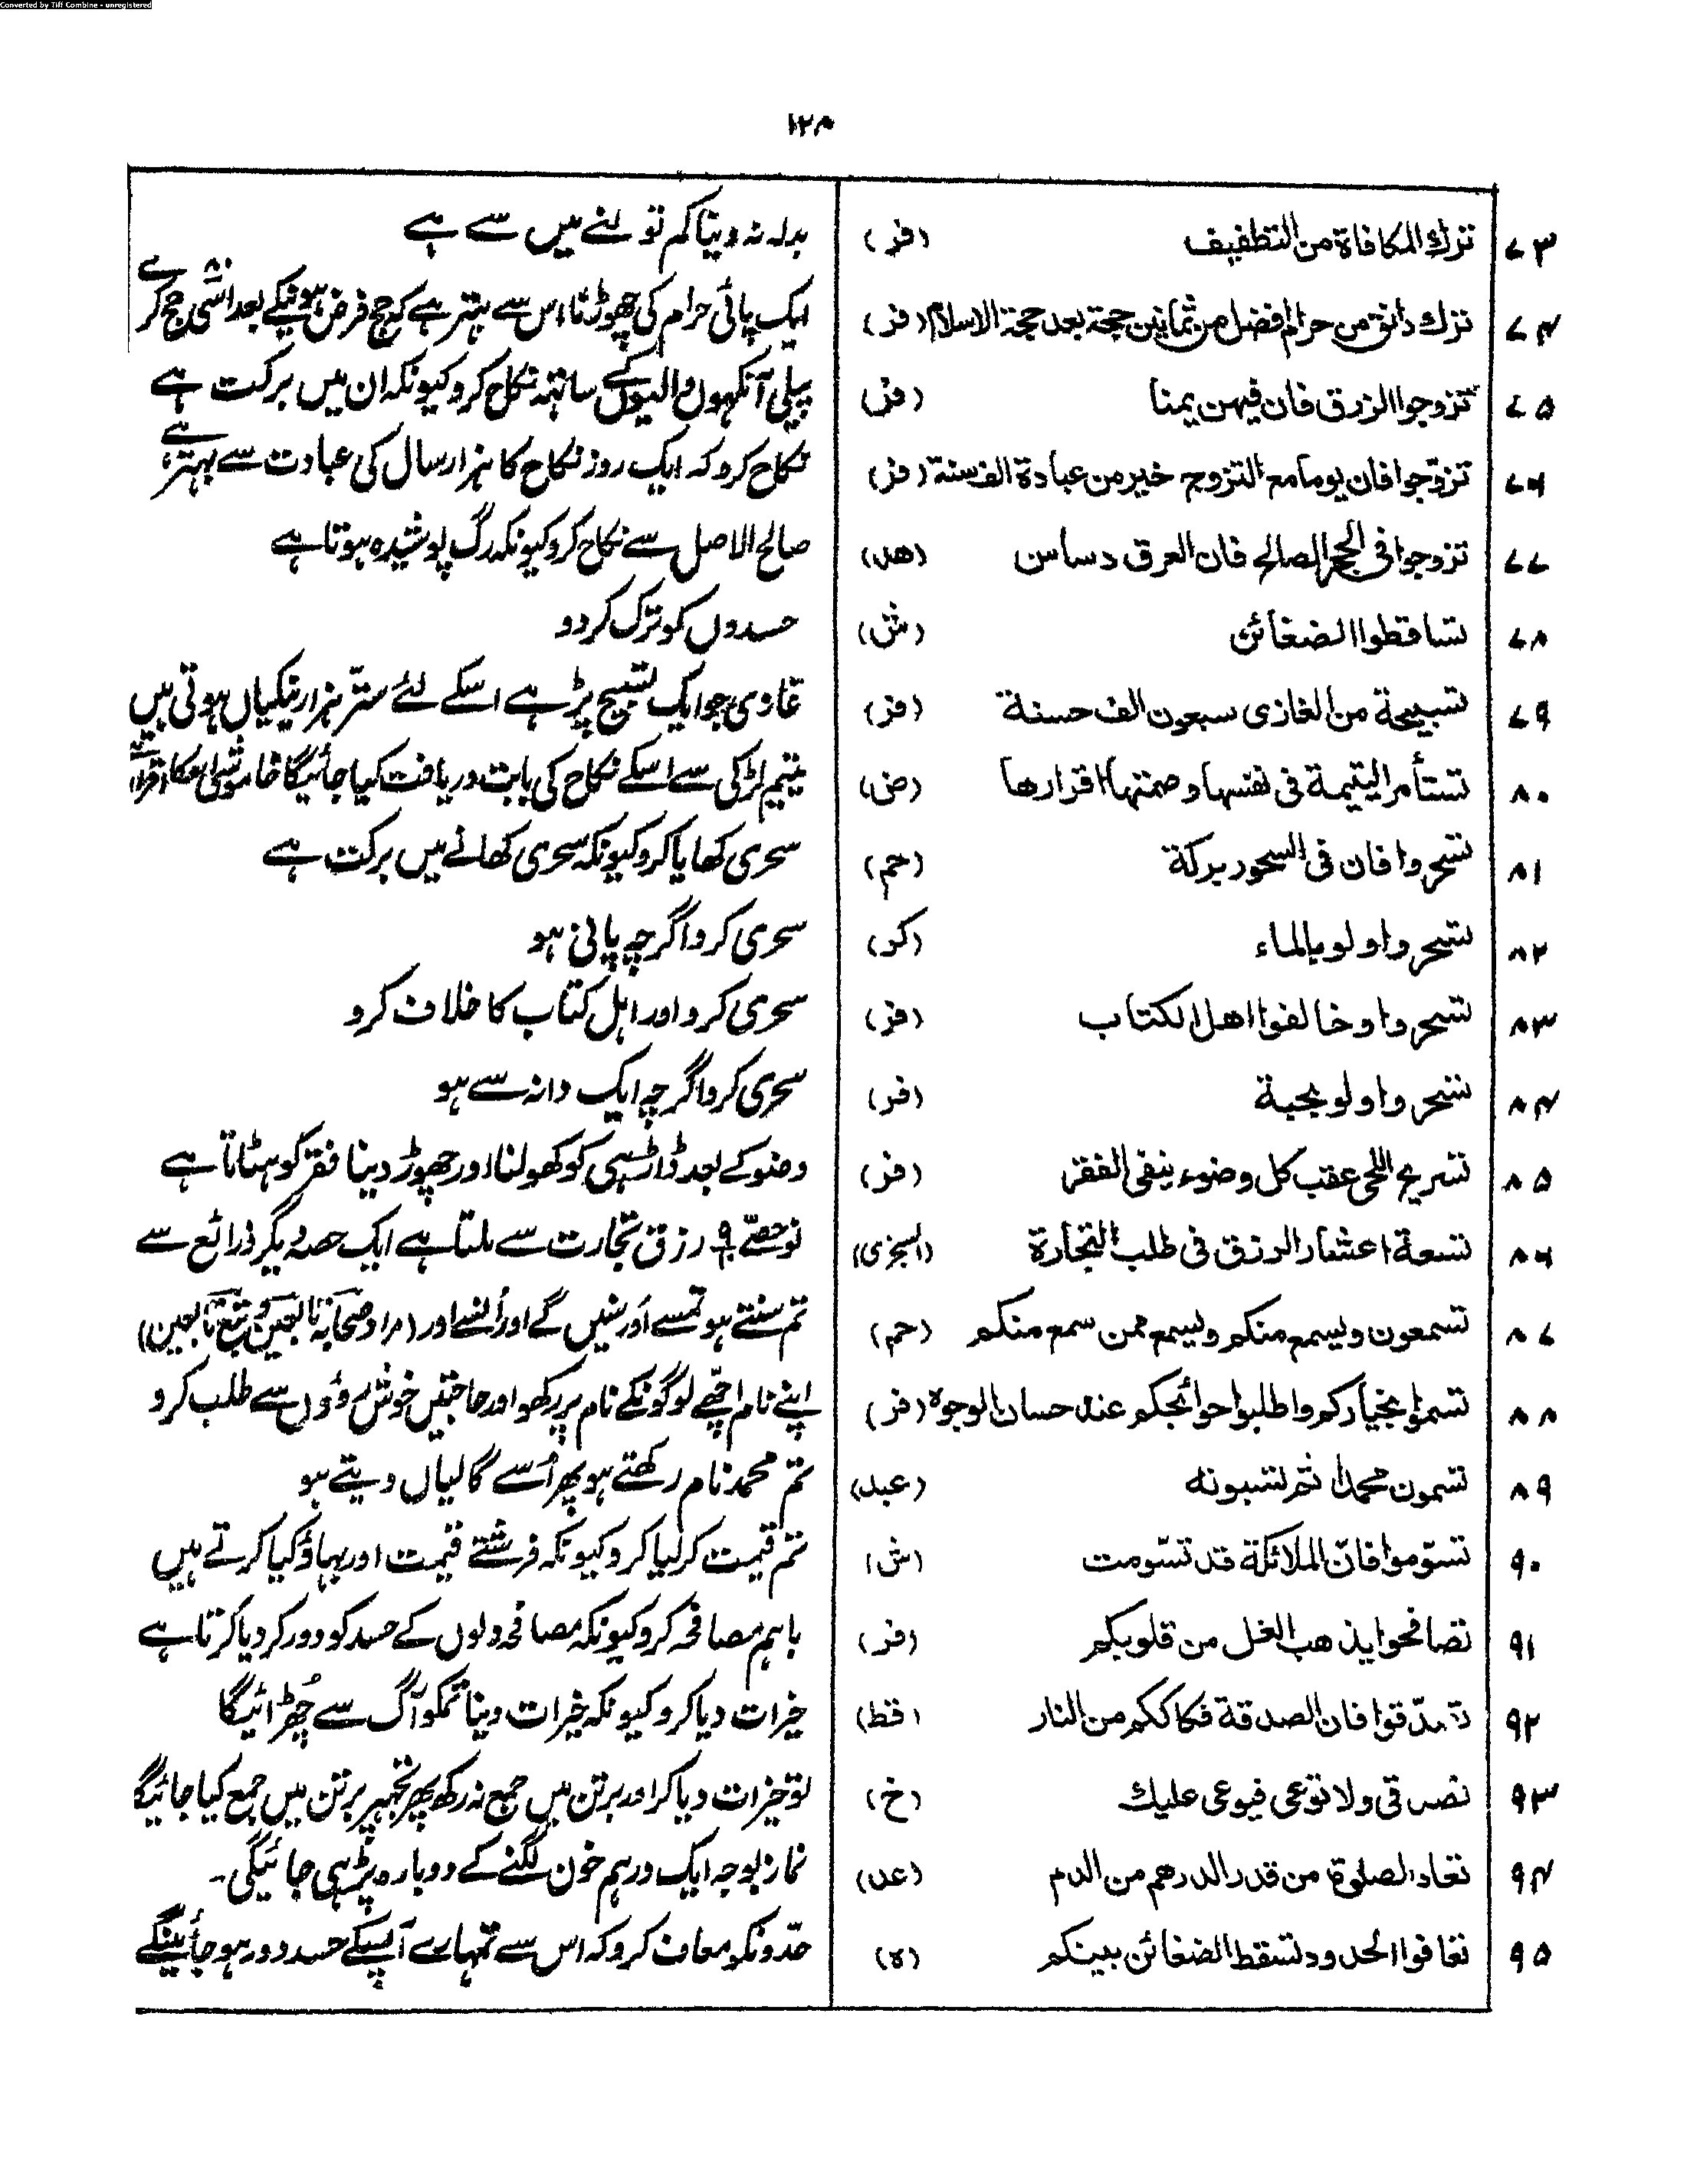 Converted by Tiff Combine - unregistered
۱۲۸
۷۳ ترك المكافاة من التطفيف (فر) بدلہ نہ دینا کم تولنے میں سے ہے
۷۴ ترك دانق من حرام افضل من ثمانين حجة بعد حجة الاسلام (فر) ایک پائی حرام کی چھوڑنا اس سے بہتر ہے کہ حج فرض ہونیکے بعد اسّی ۸۰ حج کرے
۷۵ تزوجوا الزرق فان فيهن يمنا (فر) پیلی آنکہوں والیوں کے ساتہہ نکاح کرو کیونکہ ان میں برکت ہے
۷۶ تزوّجوا فان يوما مع التزوج خير من عبادة الف سنة (فر) نکاح کرو کہ ایک روز نکاح کا ہزار سال کی عبادت سے بہتر ہے
۷۷ تزوجوا فى الحجر الصالح فان العرق دساس (هد) صالح الاصل سے نکاح کرو کیونکہ رگ پوشیدہ ہوتا ہے
۷۸ تساقطوا الضغائن (ش) حسدوں کو ترک کردو
۷۹ تسبيحة من الغازى سبعون الف حسنة (فر) غازی جو ایک تسبیح پڑہے اسکے لئے ستّر ہزار نیکیاں ہوتی ہیں
۸۰ تستأمر اليتيمة فى نفسها وصمتها اقرارها (ض) یتیم لڑکی سے اسکے نکاح کی بابت دریافت کیا جائیگا خاموشی اسکا اقرار ہے
۸۱ تسحروا فان فى السحور بركة (حم) سحری کھایا کرو کیونکہ سحری کھانے میں برکت ہے
۸۲ تسحروا ولو بالماء (كر) سحری کرو اگرچہ پانی ہو
۸۳ تسحروا وخالفوا اهل الكتاب (فر) سحری کرو اور اہل کتاب کا خلاف کرو
۸۴ تسحروا ولو بحبة (فر) سحری کرو اگرچہ ایک دانہ سے ہو
۸۵ تسريح اللحى عقب كل وضوء ينفى الفقر (فر) وضو کے بعد ڈاڑہی کو کھولنا اور چھوڑ دینا فقر کو ہٹاتا ہے
۸۶ تسعة اعشار الرزق فى طلب التجارة (السجزى) نو حصّے رزق تجارت سے ملتا ہے ایک حصہ دیگر ذرائع سے
۸۷ تسمعون ويسمع منكم ويسمع ممن سمع منكم (حم) تم سنتے ہو تمسے اَور سنیں گے اور اُنسے اور (مراد صحابہ تابعین و تبع تابعین)
۸۸ تسموا بخياركم واطلبوا حوائجكم عند حسان الوجوه (فر) اپنے نام اچّھے لوگونکے نام پر رکھو اور حاجتیں خوش رؤوں سے طلب کرو
۸۹ تسمون محمدا ثم تسبونه (عبد) تم محمد نام رکھتے ہو پھر اُسے گالیاں دیتے ہو
۹۰ تسوّموا فانّ الملائكة قد تسوّمت (ش) تم قیمت کرلیا کرو کیونکہ فرشتے قیمت اور بہاؤ کیا کرتے ہیں
۹۱ تصافحوا يذهب الغل من قلوبكم (فر) باہم مصافحہ کرو کیونکہ مصافحہ دلوں کے حسد کو دور کردیا کرتا ہے
۹۲ تصدّقوا فان الصدقة فكاككم من النار (قط) خیرات دیا کرو کیونکہ خیرات دینا تمکو آگ سے چُھڑائیگا
۹۳ تصدقى ولا توعى فيوعى عليك (خ) تو خیرات دیا کر اور برتن میں جمع نہ رکھ پھر تجہپر برتن میں جمع کیا جائیگا
۹۴ تعاد الصلوة من قدر الدرهم من الدم (عد) نماز بوجہ ایک درہم خون لگنے کے دوبارہ پڑہی جائیگی۔
۹۵ تعافوا الحدود تسقط الضغائن بينكم (ه) حدّونکو معاف کرو کہ اس سے تمہارے آپسکے حسد دور ہوجائینگے